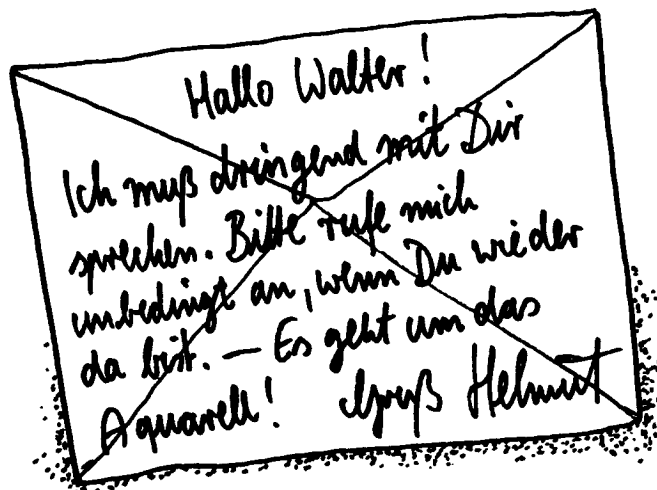 Hallo Walter!
Ich muß dringend mit Dir
sprechen. Bitte rufe mich
unbedingt an, wenn Du wieder
da bist. — Es geht um das
Aquarell! Gruß Helmut